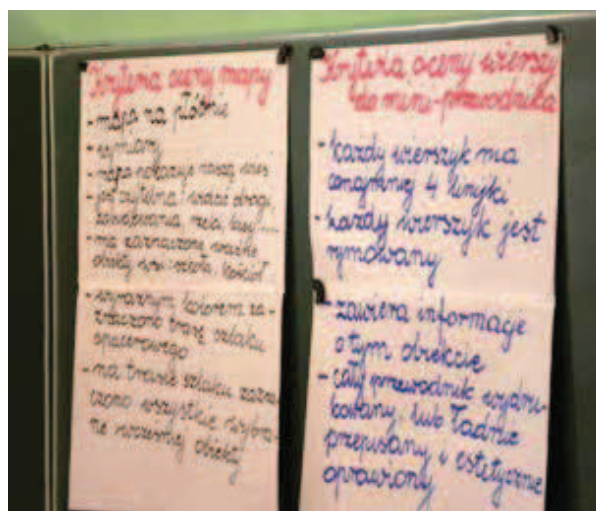 Kryteria oceny mapy
- mapa na płótnie
- wymiary
- mapa pokazuje naszą wieś
- jest czytelna: widać drogi,
zabudowania, rzeki, lasy....
- ma zaznaczone ważne
obiekty we wsi: szkoła, kościół..
- wyraźnym kolorem za-
znaczono trasę szlaku
spacerowego
- na trasie szlaku zazna-
czono wszystkie wybra-
ne wcześniej obiekty
Kryteria oceny wierszy
do mini-przewodnika
- każdy wierszyk ma
co najmniej 4 linijki
- każdy wierszyk jest
rymowany
- zawiera informacje
o tym obiekcie
- cały przewodnik wydru-
kowany, lub ładnie
przepisany i estetycznie
oprawiony